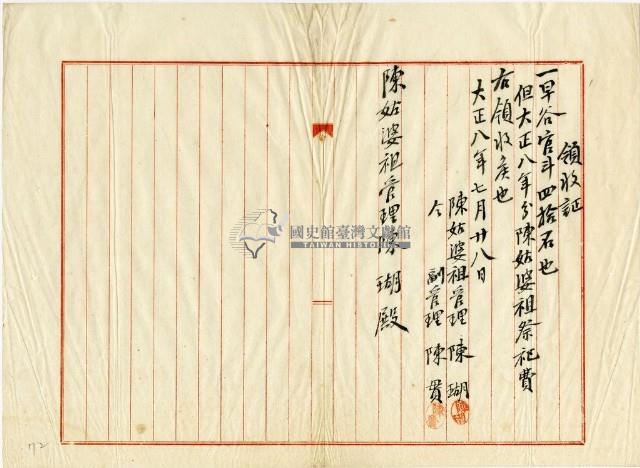 領收証
一早谷官斗四拾石也
但大正八年分陳姑婆祖祭祀費
右領收候也
大正八年七月廿八日
陳姑婆祖管理 陳瑚
仝 副管理 陳貫
陳姑婆祖管理陳瑚殿
國史館臺灣文獻館
TAIWAN HISTORICA
72